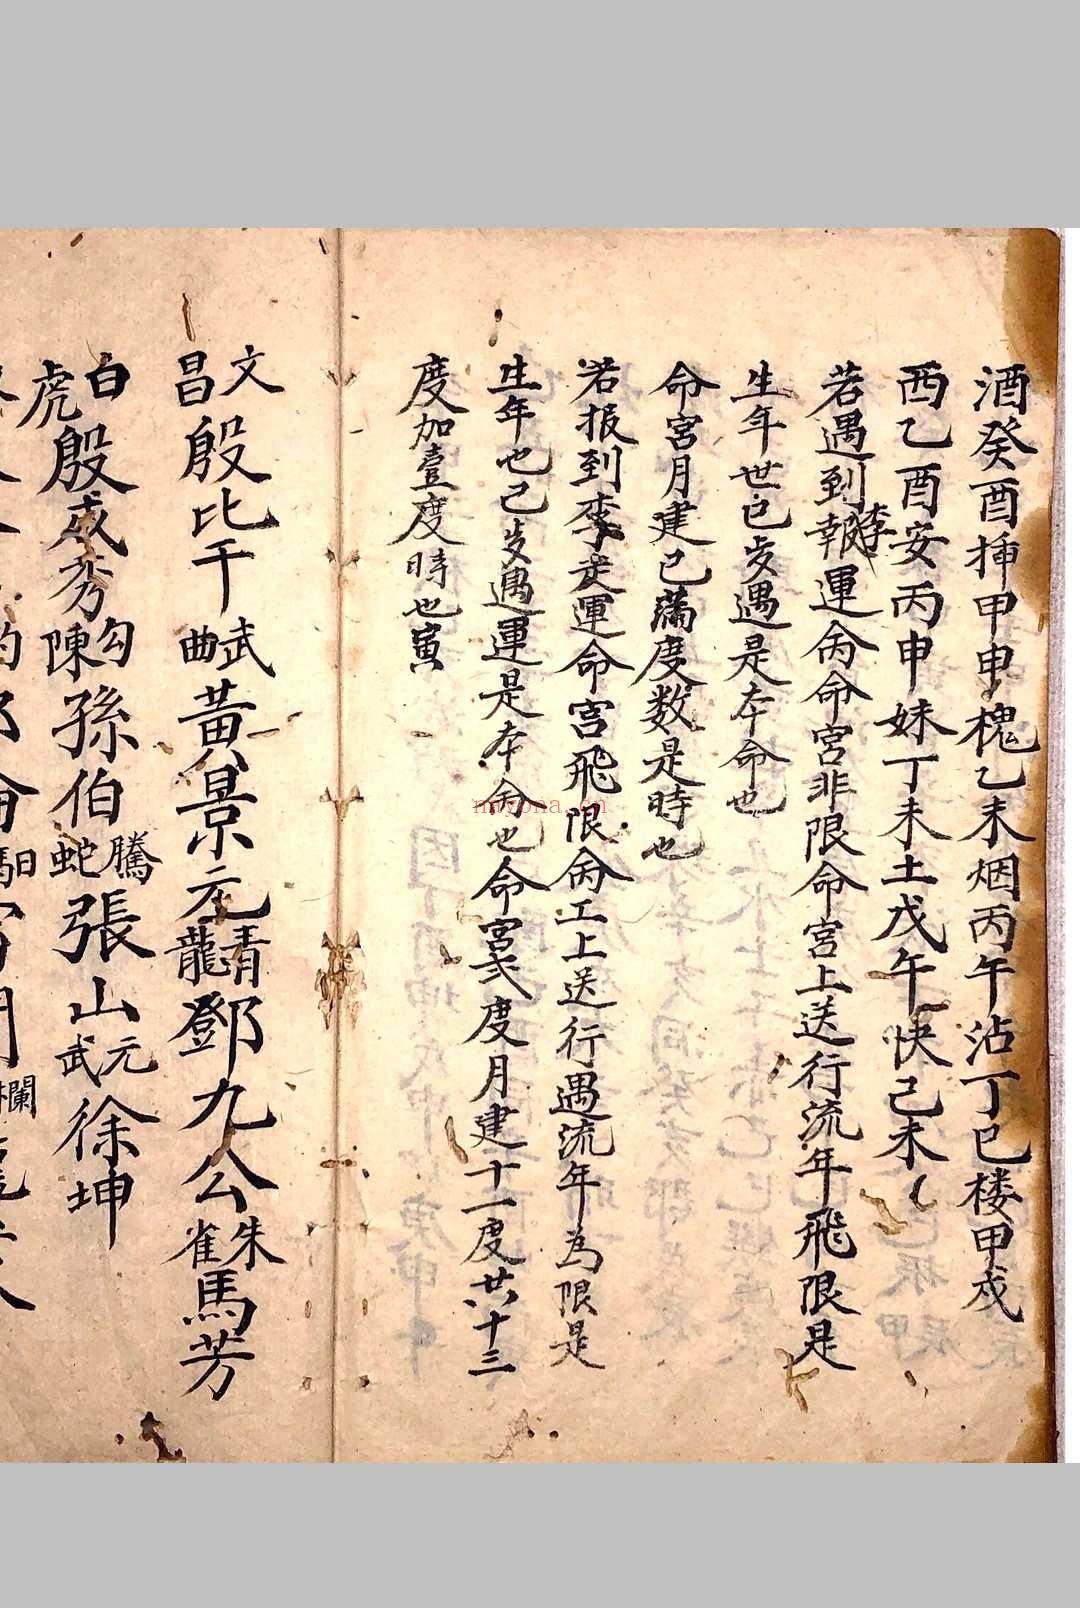 酒癸酉挿甲申槐乙未烟丙午沾丁巳楼甲戍
西乙酉安丙申妹丁未土戊午快己未
若遇到報李運命宮非限命宮上送行流年飛限是
生年世已歩遇是本命也
命宮月建已滿度数是時也
若报到李運命宮飛限工上送行遇流年為限是
生年也已歩遇運是本命也命宮弍度月建十一度共十三
度加壹度時也寅
文昌殷比干武曲黃景元青龍鄧九公朱雀馬芳
白虎殷成秀勾陳孫伯騰蛇張山元武徐坤
myyona.cn